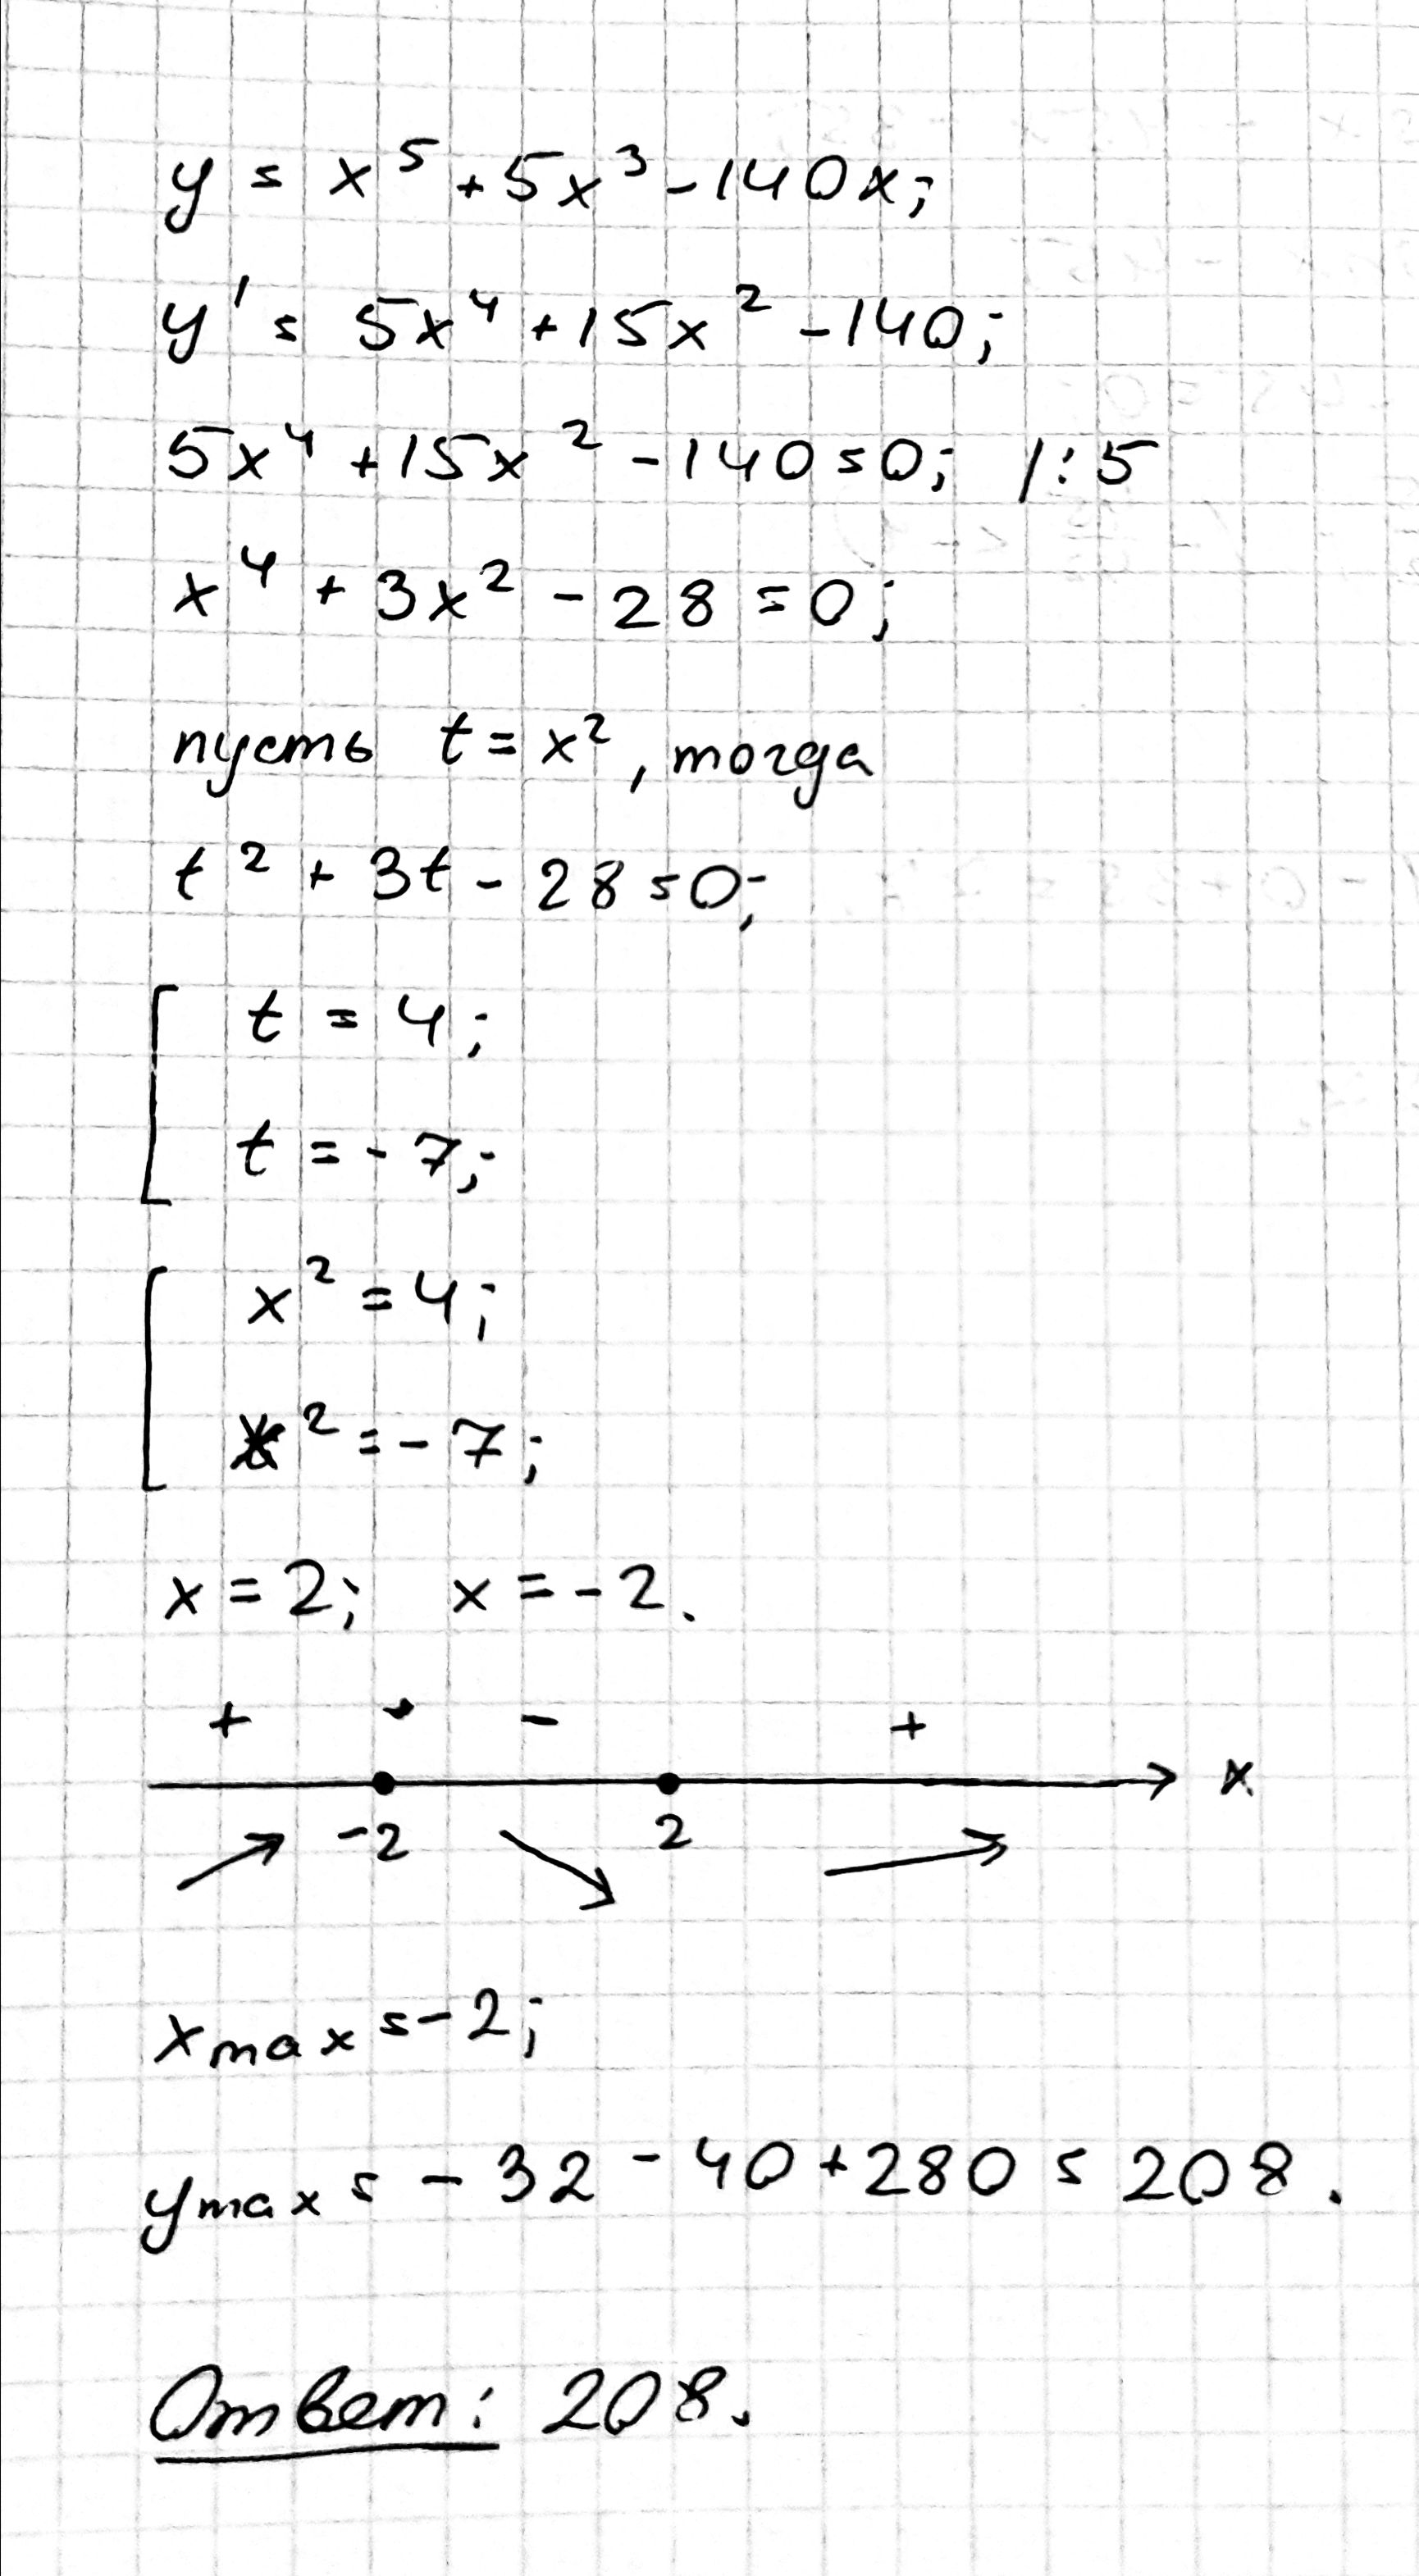 y = x⁵ + 5x³ - 140x;
y' = 5x⁴ + 15x² - 140;
5x⁴ + 15x² - 140 = 0; /:5
x⁴ + 3x² - 28 = 0;
пусть t = x², тогда
t² + 3t - 28 = 0;
t = 4;
t = -7;
x² = 4;
x² = -7;
x = 2; x = -2.
+ - +
x
-2 2
xmax = -2;
ymax = -32 - 40 + 280 = 208.
Ответ: 208.